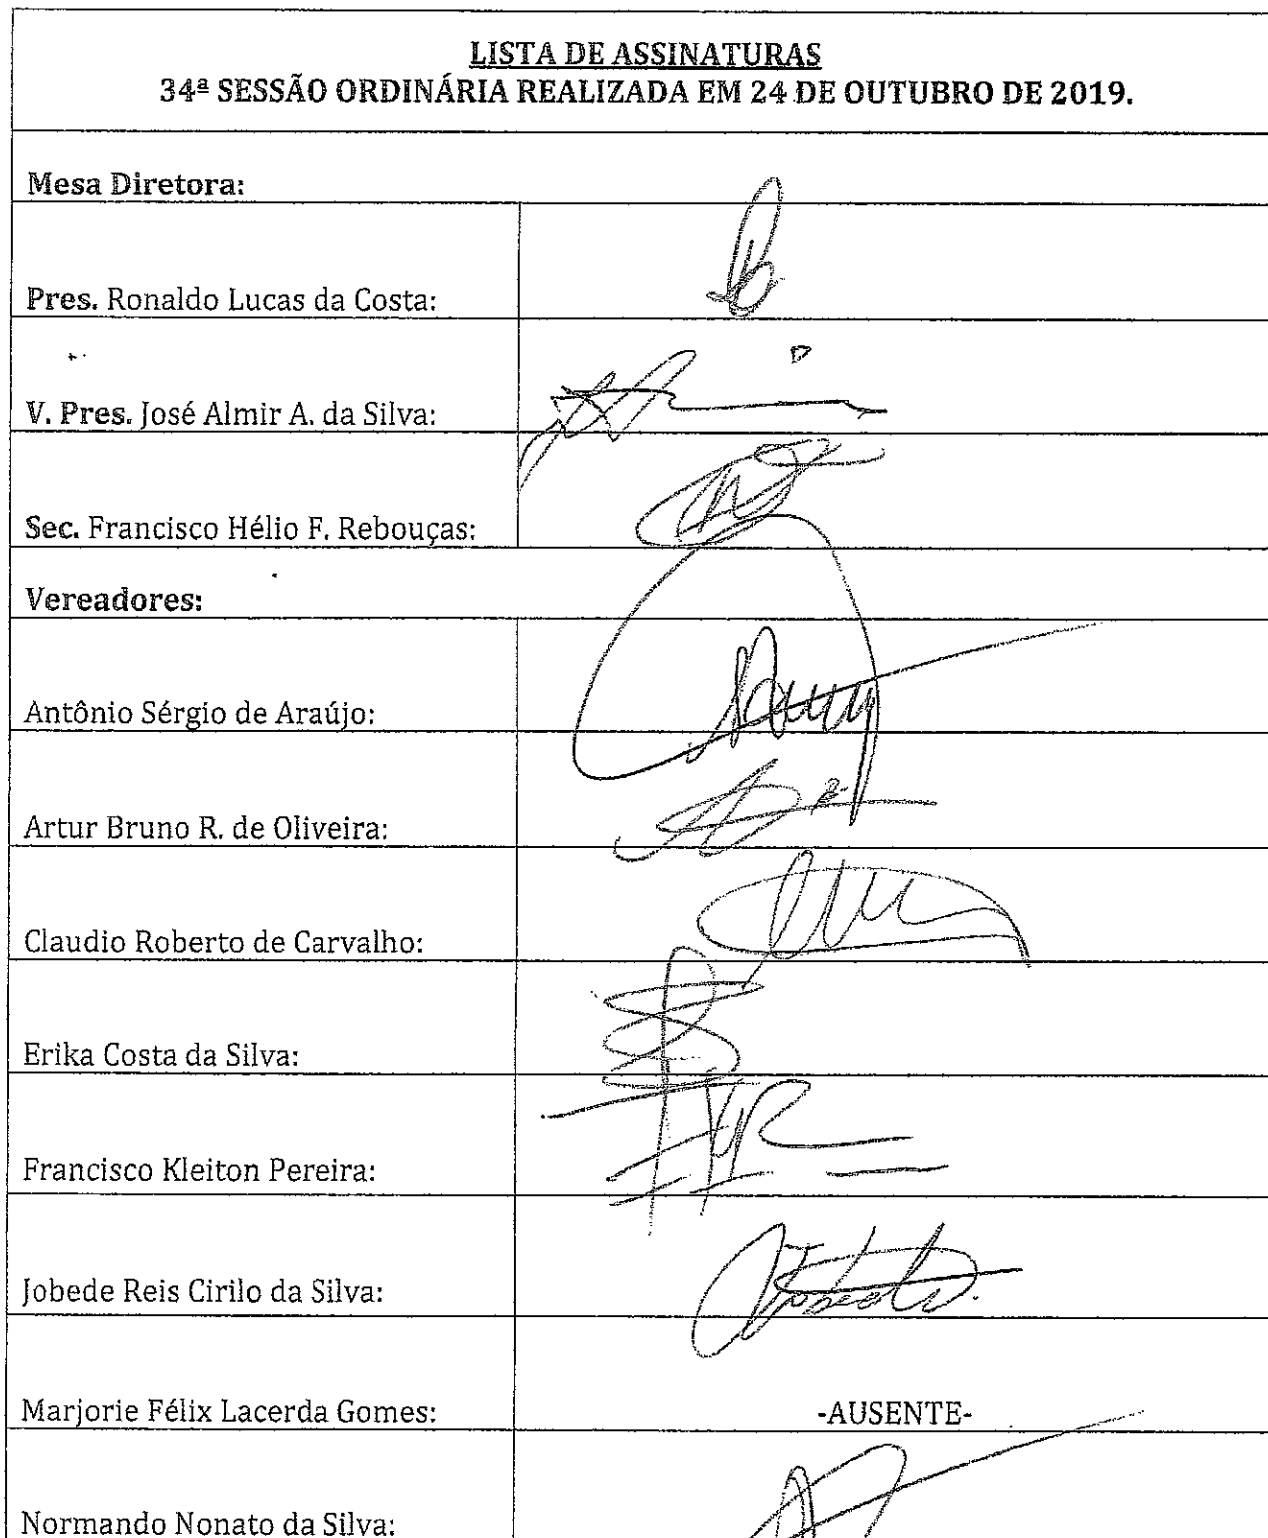 LISTA DE ASSINATURAS
34ª SESSÃO ORDINÁRIA REALIZADA EM 24 DE OUTUBRO DE 2019.
Mesa Diretora:
Pres. Ronaldo Lucas da Costa:
V. Pres. José Almir A. da Silva:
Sec. Francisco Hélio F. Rebouças:
Vereadores:
Antônio Sérgio de Araújo:
Artur Bruno R. de Oliveira:
Claudio Roberto de Carvalho:
Erika Costa da Silva:
Francisco Kleiton Pereira:
Jobede Reis Cirilo da Silva:
Marjorie Félix Lacerda Gomes: -AUSENTE-
Normando Nonato da Silva: